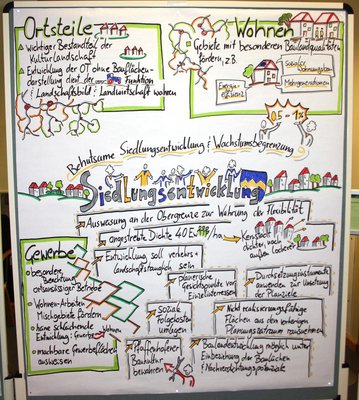 Ortsteile
• Wichtiger Bestandteil der
Kulturlandschaft
• Entwicklung der OT ohne Bauflächen-
darstellung dient der Funktion
& Landschaftsbild & Landwirtschaft wahren
Wohnen
Gebiete mit besonderen Baulandqualitäten
fördern, z.B.
Energie-
effizienz
Soziale
Mehrgenerationen
0,5 - 1%
Behutsame Siedlungsentwicklung & Wachstumsbegrenzung
Siedlungsentwicklung
Ausweisung an der Obergrenze zur Wahrung der Flexibilität
angestrebte Dichte 40 EW/ha
Kernstadt
dichter, nach
außen lockerer
Entwicklung soll verkehrs- &
landschaftsverträglich sein
planerische
Gesichtspunkte vor
Einzelinteressen
Durchsetzungsinstrumente
anwenden zur Umsetzung
der Planziele
soziale
Folgekosten
umlegen
Nicht realisierungsfähige
Flächen aus dem vorherigen
Planungszeitraum rausnehmen
Pfaffenhofener
Baukultur
bewahren
Baulandentwicklung möglich unter
Einbeziehung der Baulücken
& Nachverdichtungspotenziale
Gewerbe
• besondere
Beachtung
ortsansässiger Betriebe
• Wohnen-Arbeiten
Mischgebiete fördern
• keine schleichende
Entwicklung: Gewerbe Wohnen
• machbare Gewerbeflächen
ausweisen